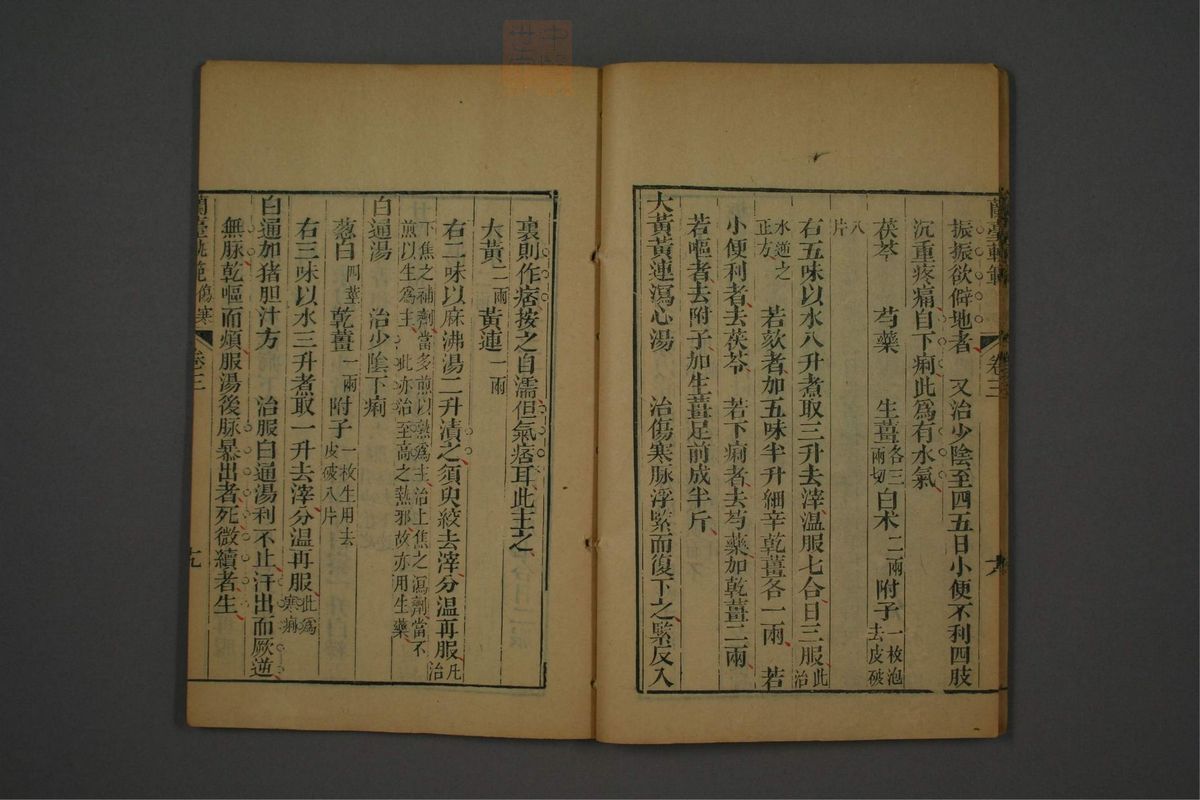 振振欲僻地者　又治少陰至四五日小便不利四肢
沉重疼痛自下痢此爲有水氣
茯苓　芍藥　生薑各三兩切白术二兩附子一枚炮去皮破
八片
右五味以水八升煮取三升去滓溫服七合日三服此治
水逆之正方　若欬者加五味半升細辛乾薑各一兩　若
小便利者去茯苓　若下痢者去芍藥加乾薑二兩
若嘔者去附子加生薑足前成半斤
大黃黃連瀉心湯　治傷寒脉浮緊而復下之緊反入
裏則作痞按之自濡但氣痞耳此主之
大黃二兩黃連一兩
右二味以麻沸湯二升漬之須臾絞去滓分溫再服凡治
下焦之補劑當多煎以熟爲主治上焦之瀉劑當不
煎以生爲主此亦治至高之熱邪故亦用生藥
白通湯　治少陰下痢
葱白四莖乾薑一兩附子一枚生用去皮破八片
右三味以水三升煮取一升去滓分温再服此爲寒痢
白通加猪胆汁方　治服白通湯利不止汗出而厥逆
無脉乾嘔而煩服湯後脉暴出者死微續者生
蘭臺軌範傷寒　卷三　十九